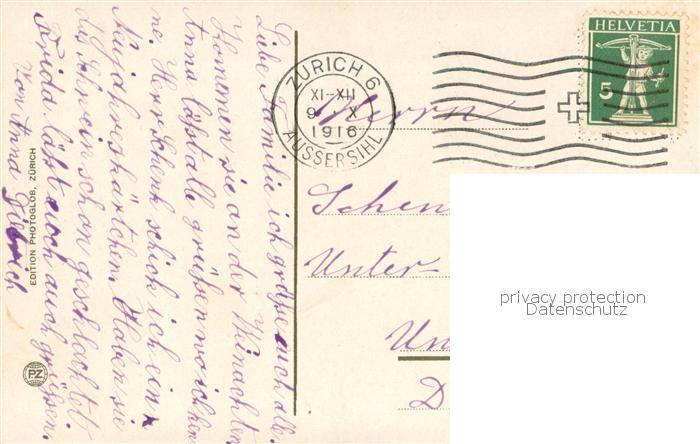 Liebe Familie ich grüße euch alle.
Kommen sie an der Weinachten
Anna läßt alle grüßen wo ich ken
ne. Herr Schenk schick ich ein
Neujahrskärtchen. Haben sie
das Schwei schon geschlachtet.
Frida läßt euch auch grüßen.
Von Anna
EDITION PHOTOGLOB, ZÜRICH
PZ
ZÜRICH 6
XI–XII
9 X
1916
AUSSERSIHL
HELVETIA
5
Herrn
Schen
Unter-
Un
D
privacy protection
Datenschutz